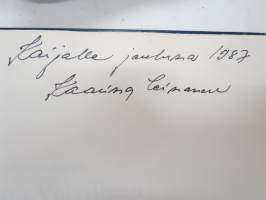 Kaijalle jouluna 1987
Kaarina Leinonen